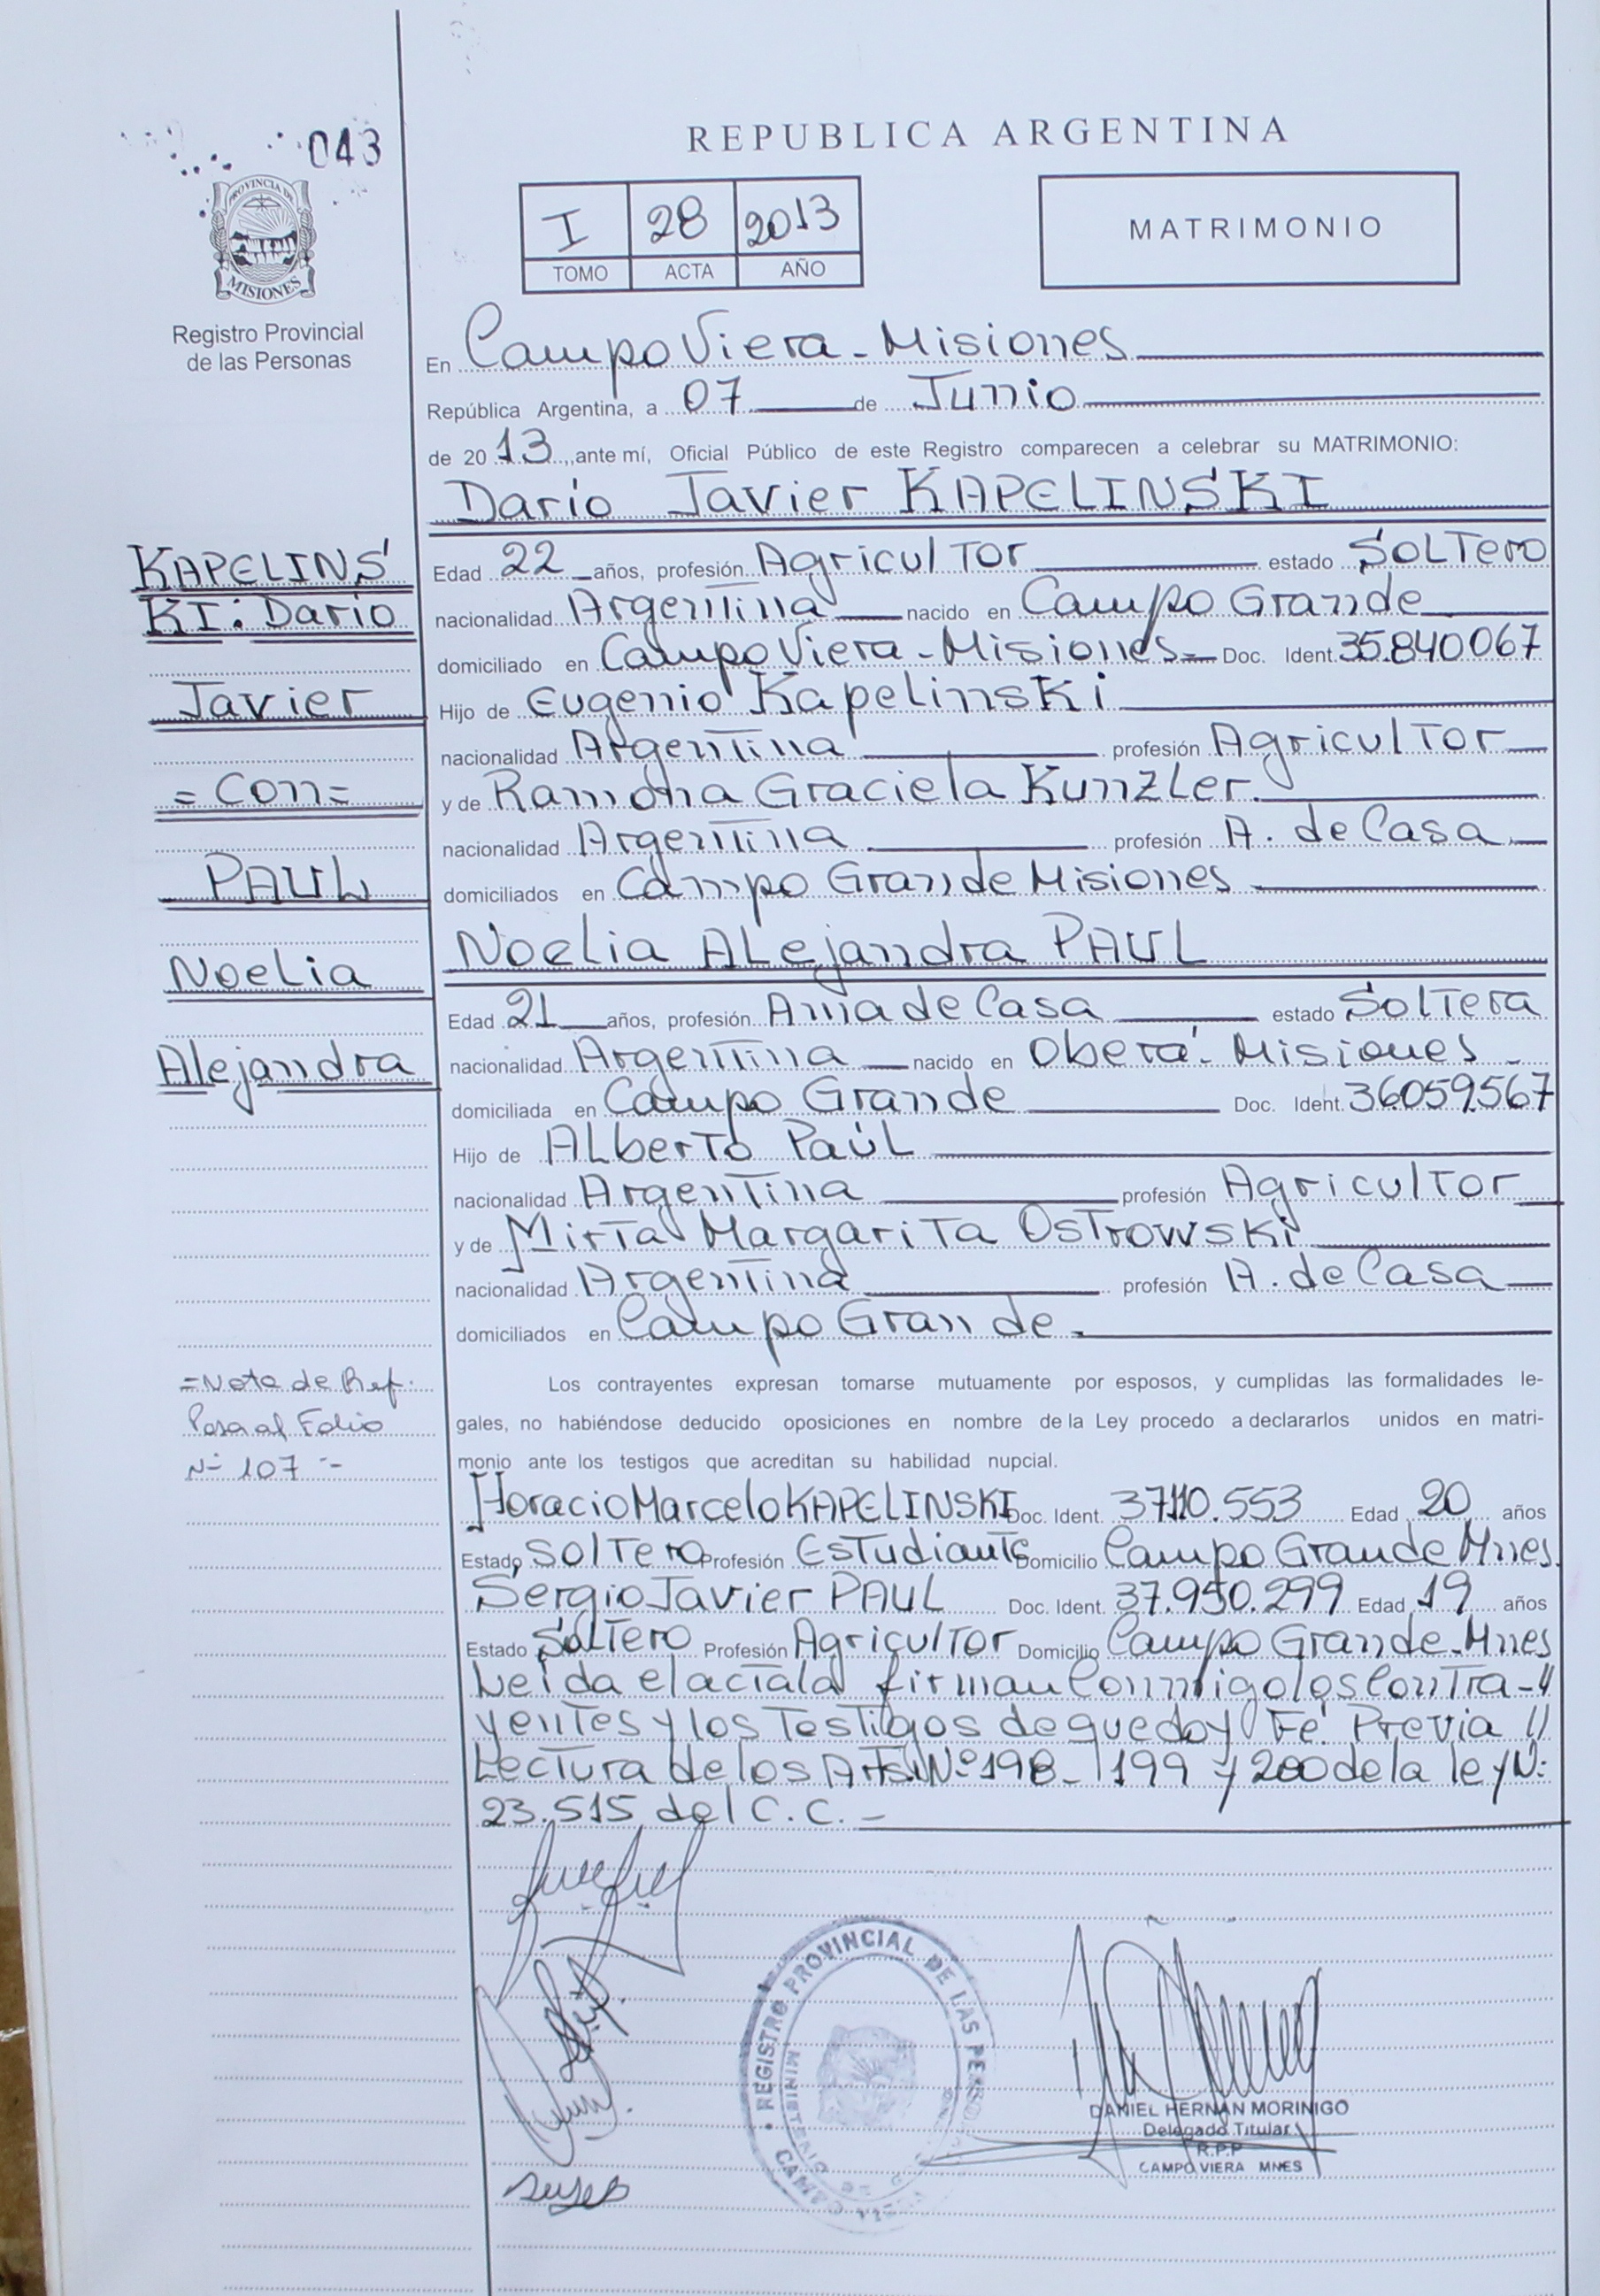 043
PROVINCIA DE
MISIONES
Registro Provincial
de las Personas
REPUBLICA ARGENTINA
I 28 2013
TOMO ACTA AÑO
MATRIMONIO
En Campo Viera - Misiones
República Argentina, a 07 de Junio
de 2013, ante mí, Oficial Público de este Registro comparecen a celebrar su MATRIMONIO:
Darío Javier KAPELINSKI
Edad 22 años, profesión Agricultor estado Soltero
nacionalidad Argentina nacido en Campo Grande
domiciliado en Campo Viera - Misiones Doc. Ident. 35.840067
Hijo de Eugenio Kapelinski
nacionalidad Argentina profesión Agricultor
y de Ramona Graciela Kunzler
nacionalidad Argentina profesión A. de Casa
domiciliados en Campo Grande Misiones
Noelia Alejandra PAUL
Edad 21 años, profesión Ama de Casa estado Soltera
nacionalidad Argentina nacido en Oberá - Misiones
domiciliada en Campo Grande Doc. Ident. 36059567
Hijo de Alberto Paúl
nacionalidad Argentina profesión Agricultor
y de Mirta Margarita Ostrowski
nacionalidad Argentina profesión A. de Casa
domiciliados en Campo Grande.
KAPELINS
KI: Darío
Javier
=Con=
PAUL
Noelia
Alejandra
=Nota de Ref.
Pasa al Folio
Nº 107 =
Los contrayentes expresan tomarse mutuamente por esposos, y cumplidas las formalidades le-
gales, no habiéndose deducido oposiciones en nombre de la Ley procedo a declararlos unidos en matri-
monio ante los testigos que acreditan su habilidad nupcial.
Horacio Marcelo KAPELINSKI Doc. Ident. 37110.553 Edad 20 años
Estado Soltero Profesión Estudiante Domicilio Campo Grande Mnes
Sergio Javier PAUL Doc. Ident. 37.950.299 Edad 19 años
Estado Soltero Profesión Agricultor Domicilio Campo Grande - Mnes
Leída el acta la firman Conmigo los Contra-//
yentes y los Testigos de que doy Fé. Previa //
Lectura de los Arts. Nº 198 - 199 y 200 de la ley Nº
23.515 del C.C. -
REGISTRO PROVINCIAL DE LAS PERSO
MINISTERIO DE G
CAMPO VIERA
DANIEL HERNAN MORINIGO
Delegado Titular
R.P.P
CAMPO VIERA MNES